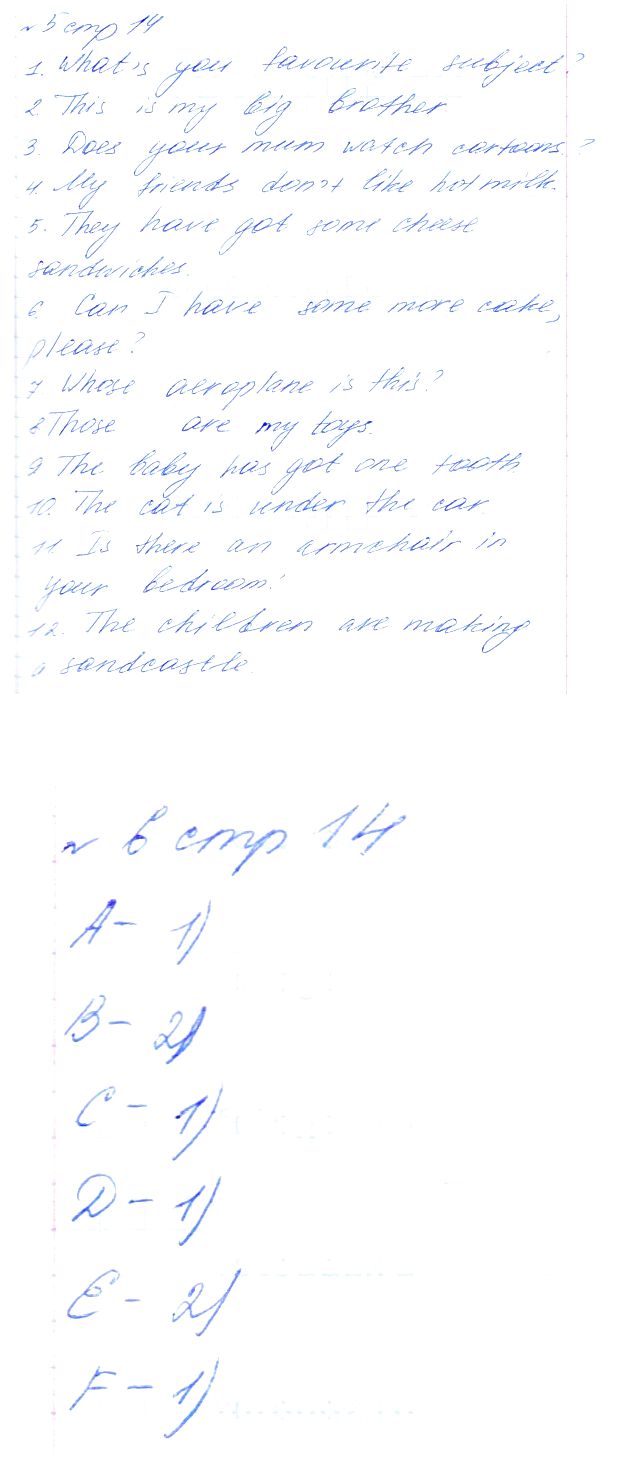 №5 стр 14
1. What's you favourite subject?
2. This is my big brother
3. Does your mum watch cartoons?
4. My friends don't like hot milk.
5. They have got some cheese
sandwiches.
6. Can I have some more cake,
please?
7 Whose aeroplane is this?
8 Those are my toys.
9 The baby has got one tooth
10. The cat is under the car.
11. Is there an armchair in
your bedroom?
12. The children are making
a sandcastle.
№ 6 стр 14
A - 1)
B - 2)
C - 1)
D - 1)
E - 2)
F - 1)